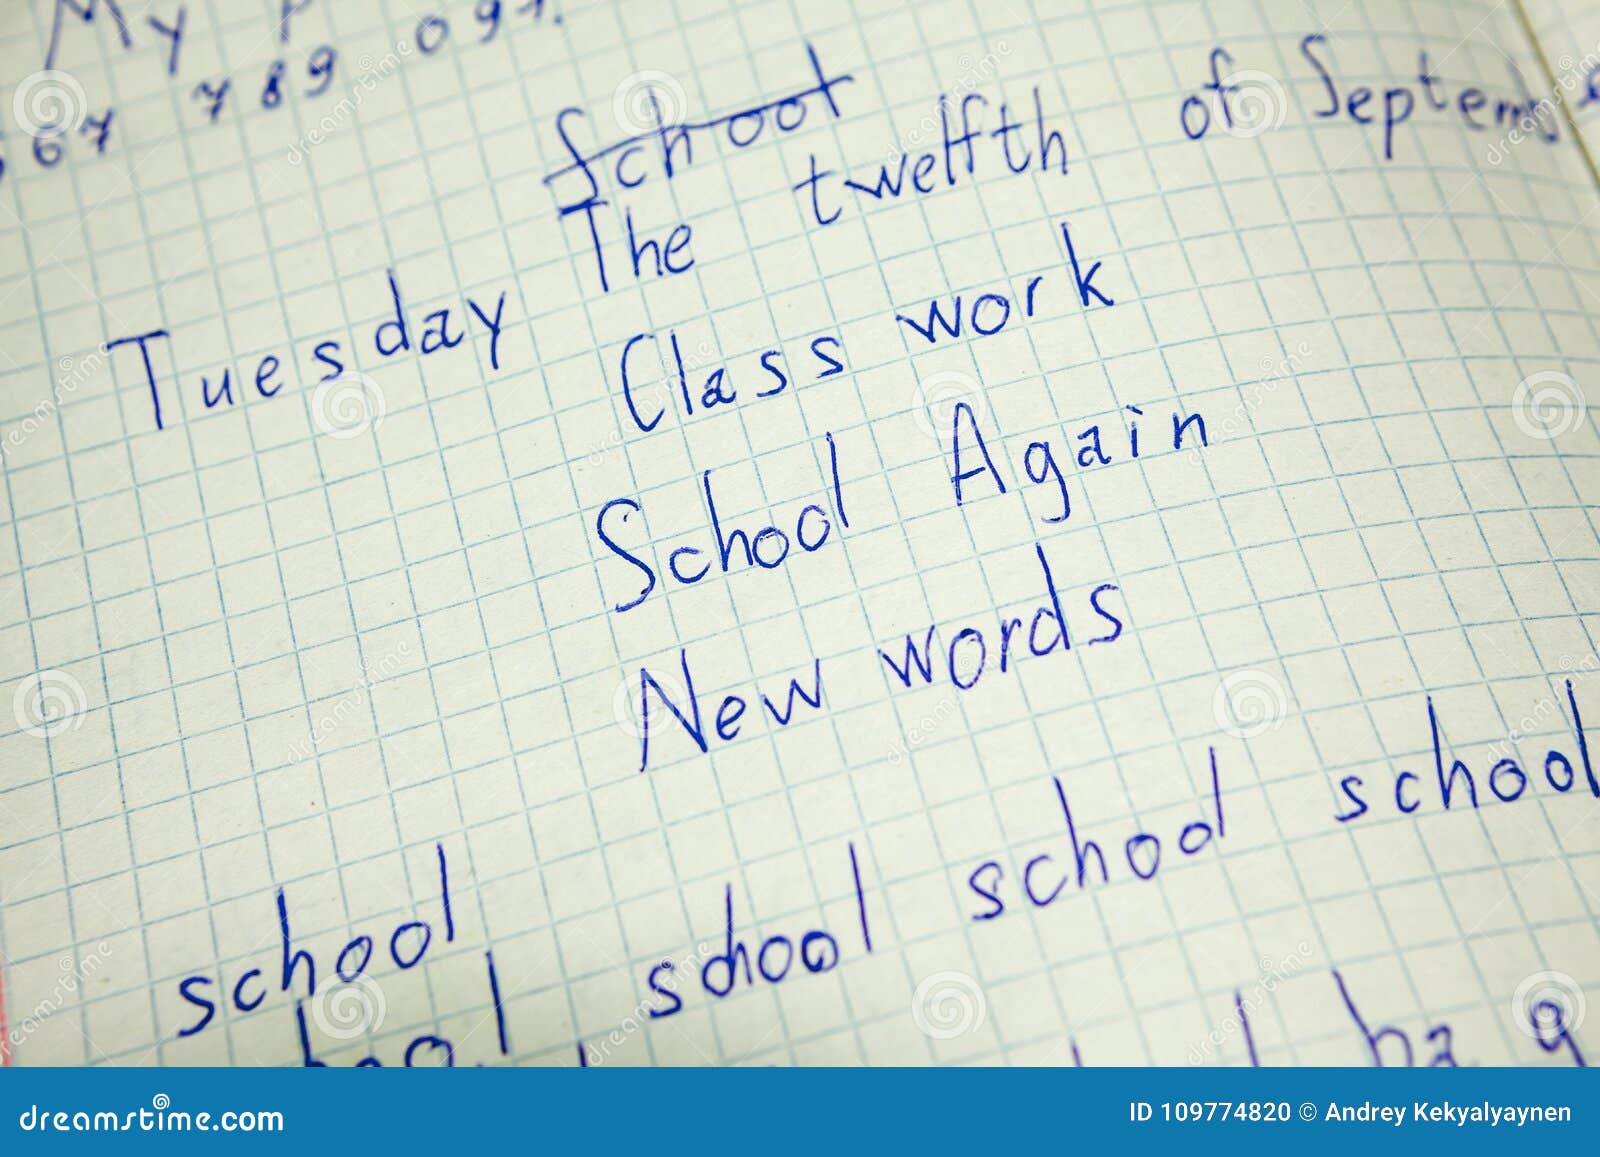 My
567 789 097.
School
The twelfth of Septem
Tuesday
Class work
School Again
New words
school school school school
dreamstime.com
ID 109774820 © Andrey Kekyalyaynen